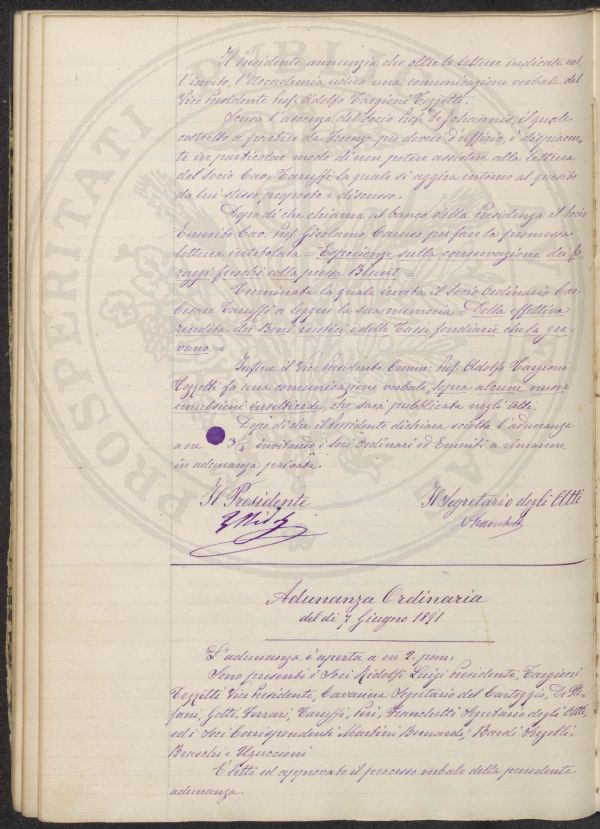 Il Presidente annunzia che oltre le letture indicate nel
l'invito, l'Accademia udirà una comunicazione verbale del
Vice Presidente Prof. Adolfo Targioni Tozzetti.
Scusa l'assenza del Socio Prof. De Johannis, il quale
costretto a partire da Firenze per dovere d'ufficio, è dispiacen-
te in particolar modo di non potere assistere alla lettura
del Socio Cav. Taruffi la quale si aggira intorno al quesito
da lui stesso proposto e discusso.
Dopo di che chiama al banco della Presidenza il Socio
Emerito Cav. Prof. Girolamo Caruso per fare la promessa
lettura intitolata = Esperienze sulla conservazione dei fo-
raggi freschi colla pressa Blunt =
Terminata la quale invita il Socio Ordinario Cav.
Cesare Taruffi a leggere la sua memoria = Della effettiva
rendita dei Beni rustici e delle Tasse fondiarie che la gra-
vano =
Infine il Vice Presidente Comm. Prof. Adolfo Targioni
Tozzetti fa una comunicazione verbale, sopra alcune nuove
emulsioni insetticide, che sarà pubblicata negli Atti.
Dopo di che il Presidente dichiara sciolta l'adunanza
a ore 3¼ invitando i Soci Ordinari ed Emeriti a rimanere
in adunanza privata.
Il Presidente
Il Segretario degli Atti
Franchetti
Adunanza Ordinaria
del dì 7 Giugno 1891
L'adunanza è aperta a ore 2 pom:
Sono presenti i Soci Ridolfi Luigi Presidente, Targioni
Tozzetti Vice Presidente, Cavanna Segretario del Carteggio, De Ste-
fani, Gotti, Ferrari, Taruffi, Pini, Franchetti Segretario degli Atti,
ed i Soci Corrispondenti Martini Bernardi, Bardi Serzelli,
Braschi e Uguccioni
È letto ed approvato il processo verbale della precedente
adunanza.
PROSPERITATI PUBLICAE